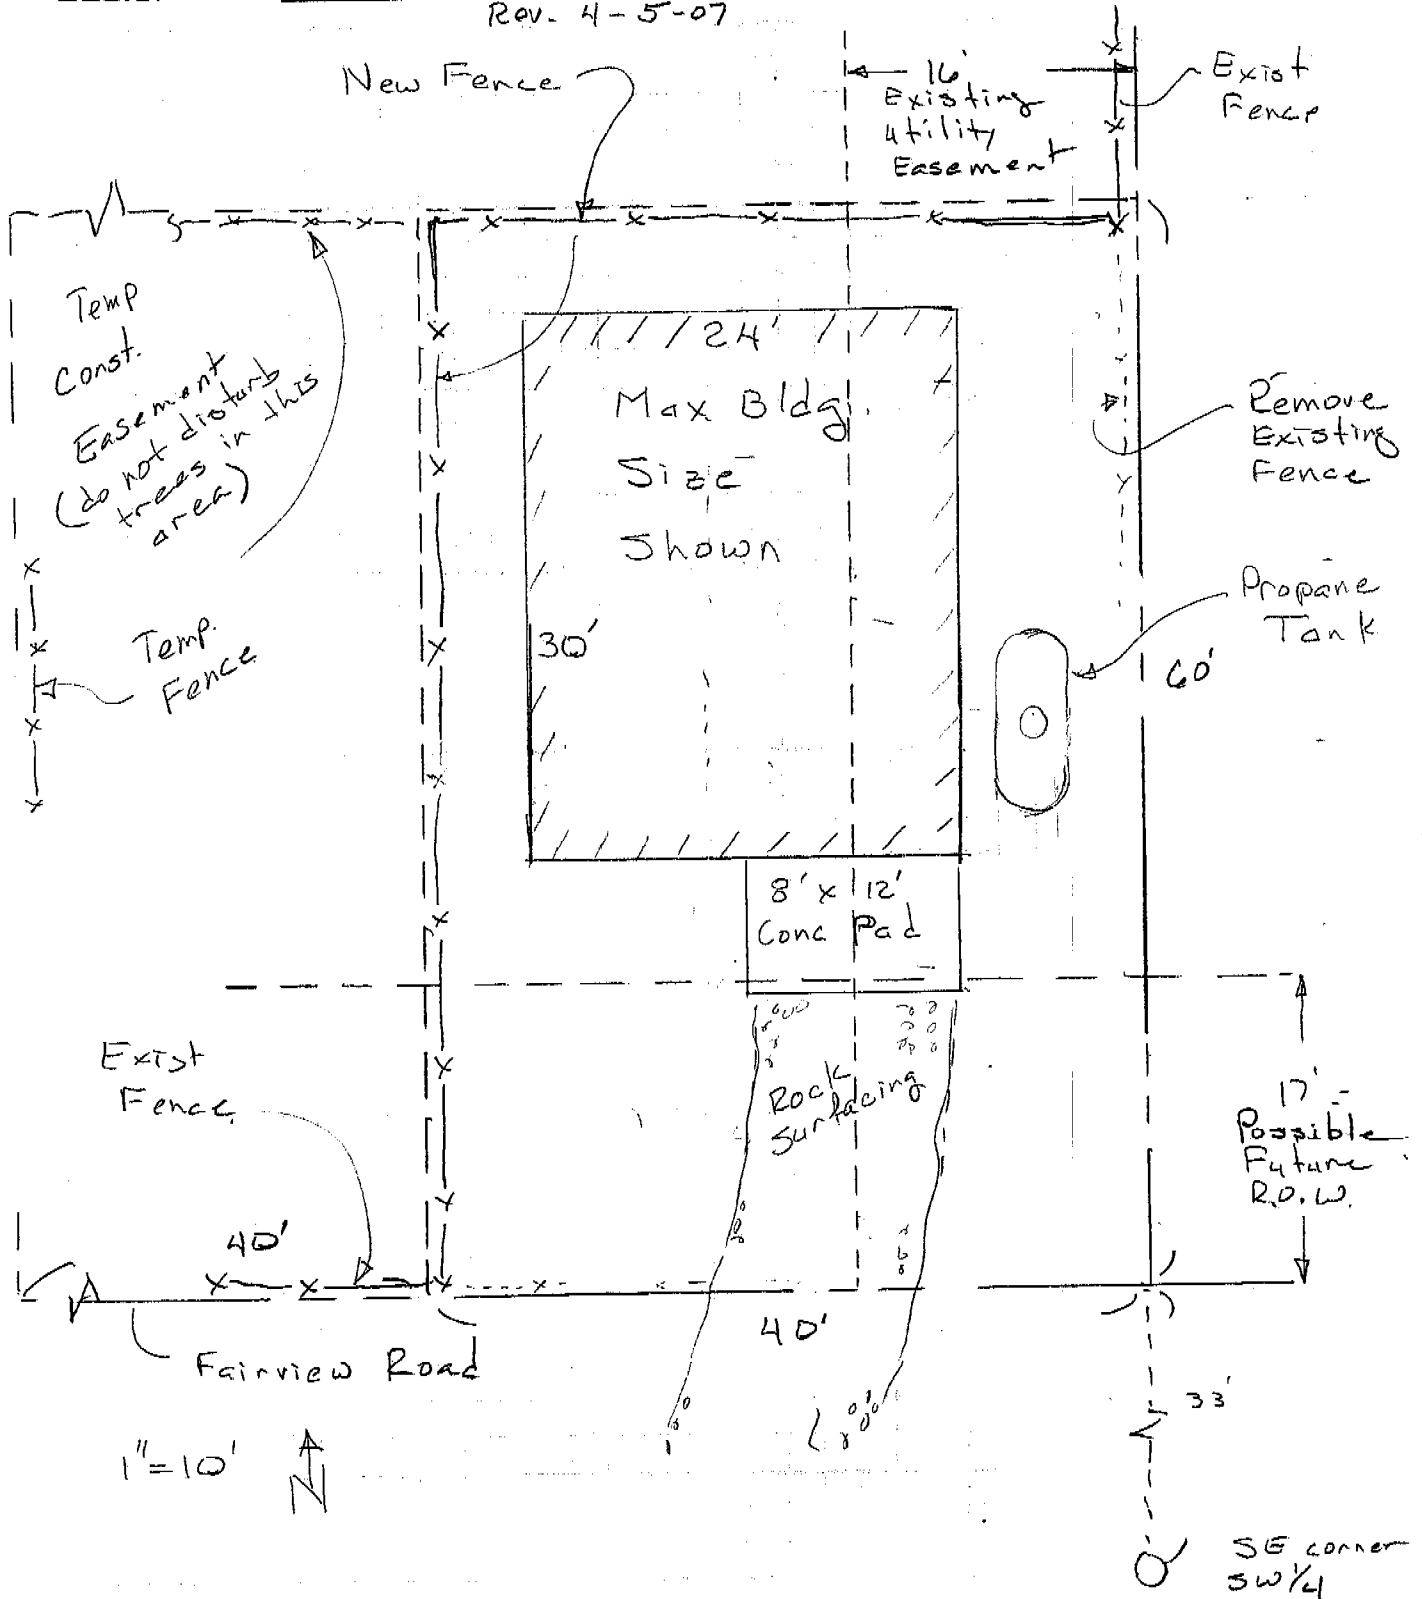 Rev. 4-5-07
New Fence
16'
Existing
Utility
Easement
Exist
Fence
Temp
Const.
Easement
(do not disturb
trees in this
area)
24'
Max Bldg.
Size
Shown
30'
Remove
Existing
Fence
Propane
Tank
60'
Temp.
Fence
8' x 12'
Conc Pad
Exist
Fence
Rock
Surfacing
17'
Possible
Future
R.O.W.
40'
40'
Fairview Road
33'
1"=10'
N
SE corner
SW 1/4